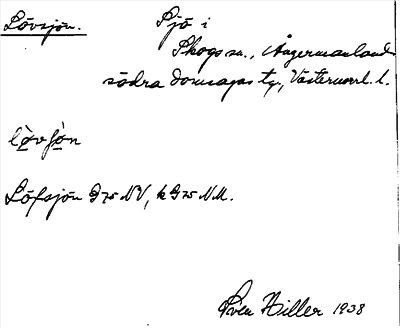 Lövsjön. Sjö i
Skogs sn., Ångermanland
södra domsagas tg, Västernorrl. l.
lövsjön
Löfsjön G 75 NV, k G 75 N.M.
Sven Hiller 1938